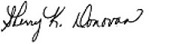 Sherry K. Donovan